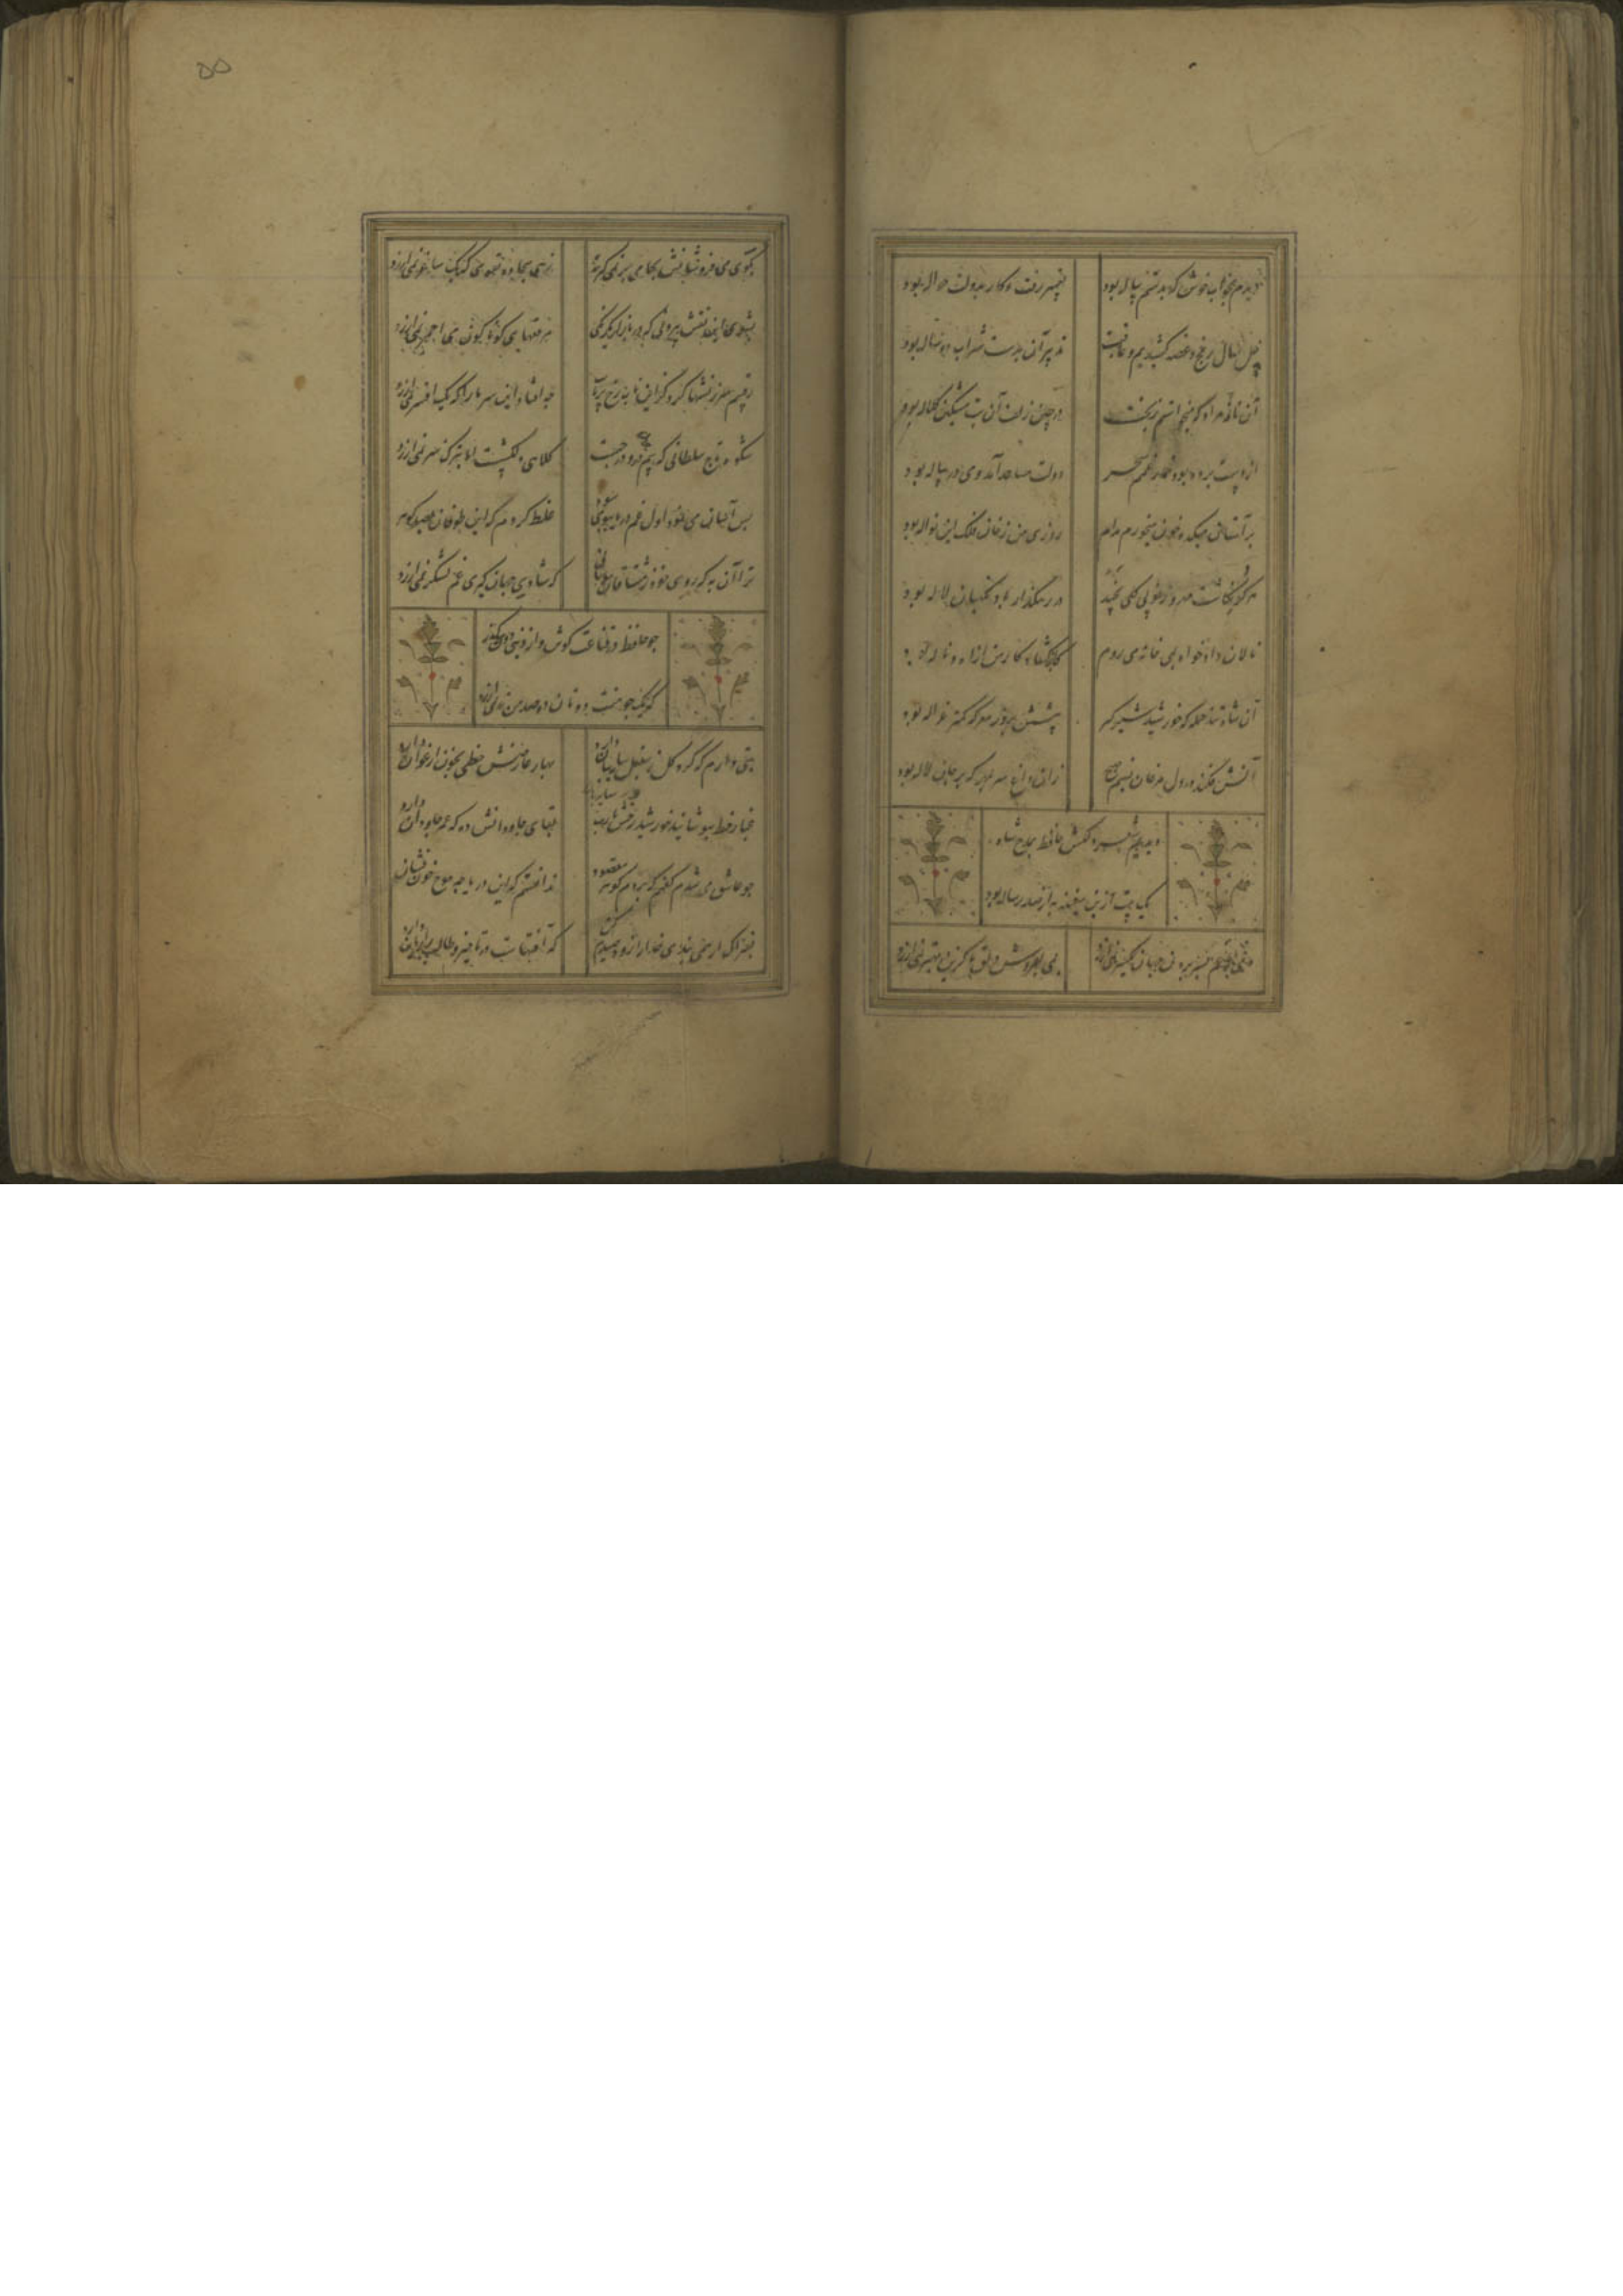 دیدم بخواب خوش که بدستم پیاله بود
تعبیر رفت و کار بدولت حواله بود
چل سال رنج و غصه کشیدیم و عاقبت
تدبیر آن بدست شراب دو ساله بود
آن نافه مراد که میخواستم ز بخت
در چین زلف آن بت مشکین کلاله بود
از دست برده بود خمار غم سحر
دولت مساعد آمد و می در پیاله بود
بر آستان میکده خون میخورم مدام
روزی من ز خوان فلک این نواله بود
هر کو نکاشت مهر و ز خوبی گلی نچید
در رهگذار باد نگهبان لاله بود
نالان و داد خواه بمی خانه می روم
کانجا گشاد کار من از آه و ناله بود
آن شاه تند حمله که خورشید شیر گیر
پیشش بروز معرکه کمتر غزاله بود
آتش فکند در دل مرغان نسیم صبح
زان داغ سر بمهر که بر جان لاله بود
دیدیم شعر دلکش حافظ بمدح شاه
یک بیت ازین سفینه به از صد رساله بود
دمی با غم بسر بردن جهان یکسر نمی ارزد
بمی بفروش دلق ما کزین بهتر نمی ارزد
۵۵
بکوی می فروشانش بجامی بر نمی گیرند
زهی سجاده تقوی که یک ساغر نمی ارزد
بشوی این نقش که در بازار یکرنگی
می احمر نمی ارزد
رقیبم سرزنشها کرد کزین باب رخ برتاب
چه افتاد این سر ما را که یک افسر نمی ارزد
شکوه تاج سلطانی که بیم سر درو درجست
کلاهی دلکش است اما بترک سر نمی ارزد
بس آسان می نمود اول غم دریا ببوی سود
غلط کردم که این طوفان بصد گوهر
ترا آن به که روی خود ز مشتاقان بپوشانی
که شادی جهان گیری غم لشکر نمی ارزد
چو حافظ در قناعت کوش و از دنیی دون بگذر
که یک جو منت دونان دو صد من زر نمی ارزد
بتی دارم که گرد گل ز سنبل سایه بان دارد
بهار عارضش خطی بخون ارغوان دارد
غبار خط بپوشانید خورشید رخش یارب
بقای جاودانش ده که عمر جاودان دارد
چو عاشق می شدم گفتم که بردم گوهر مقصود
ندانستم که این دریا چه موج خون فشان دارد
بفتراک ار همی بندی خدا را زود صیدم کن
که آفتهاست در تاخیر و طالب را زیان دارد